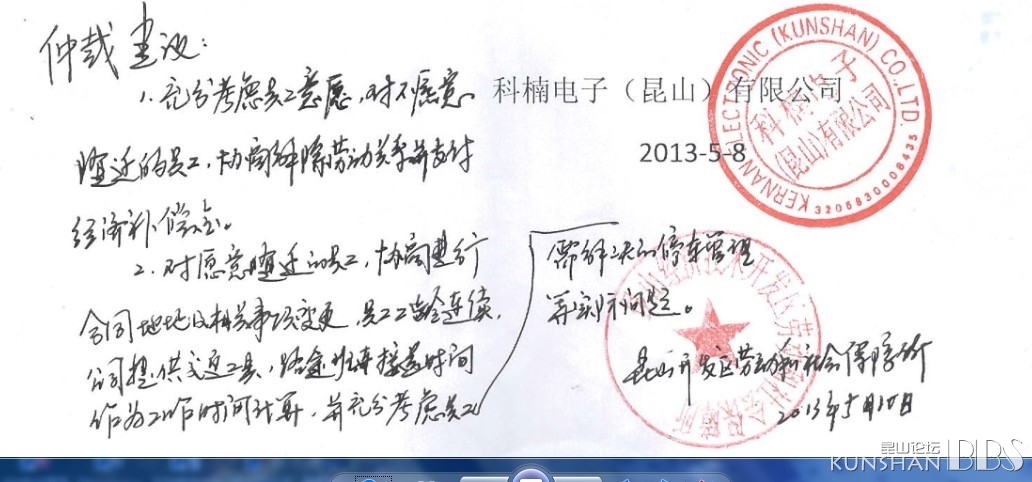 仲裁建议:
1. 充分考虑员工意愿,对不愿意
随迁的员工,协商解除劳动关系并支付
经济补偿金。
2. 对愿意随迁的员工,协商进行
合同地址及相关事项变更,员工工龄连续,
公司提供交通工具,路途班车接送时间
作为工作时间计算,并充分考虑员工
需解决的停车管理
等实际问题。
昆山开发区劳动和社会保障所
2013年5月10日
科楠电子(昆山)有限公司
2013-5-8
KERNAN ELECTRONIC (KUNSHAN) CO.,LTD.
科楠电子
(昆山)有限公司
3205830008435
昆山经济技术开发区劳动和社会保障所
昆山论坛
KUNSHAN BBS